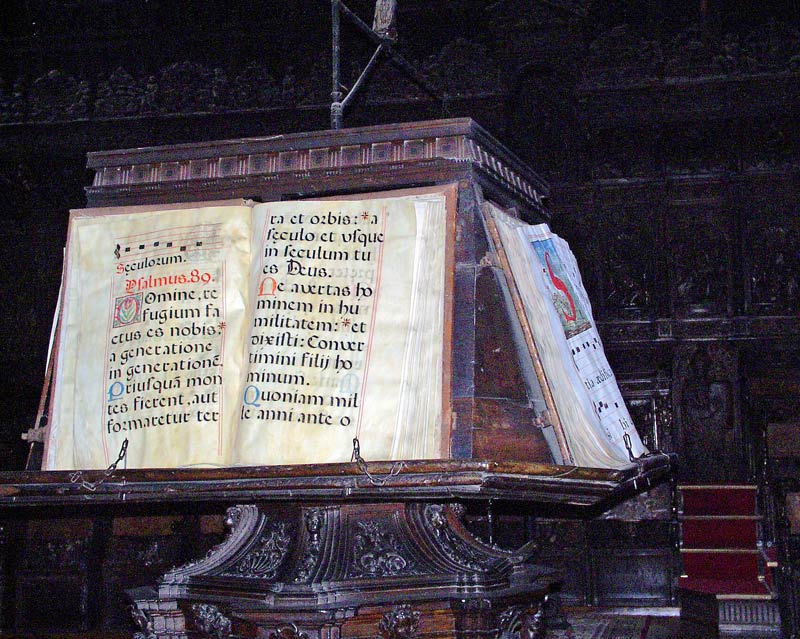 Sęculorum.
Psalmus.89.
Domine, re
fugium fa
ctus es nobis*
a generatione
in generationē.
Priusquā mon
tes fierent, aut
formaretur ter
ra et orbis:*a
sęculo et vsque
in sęculum tu
es Deus.
Ne avertas ho
minem in hu
militatem:*et
dixisti: Conver
timini filij ho
minum.
Quoniam mil
le anni ante o